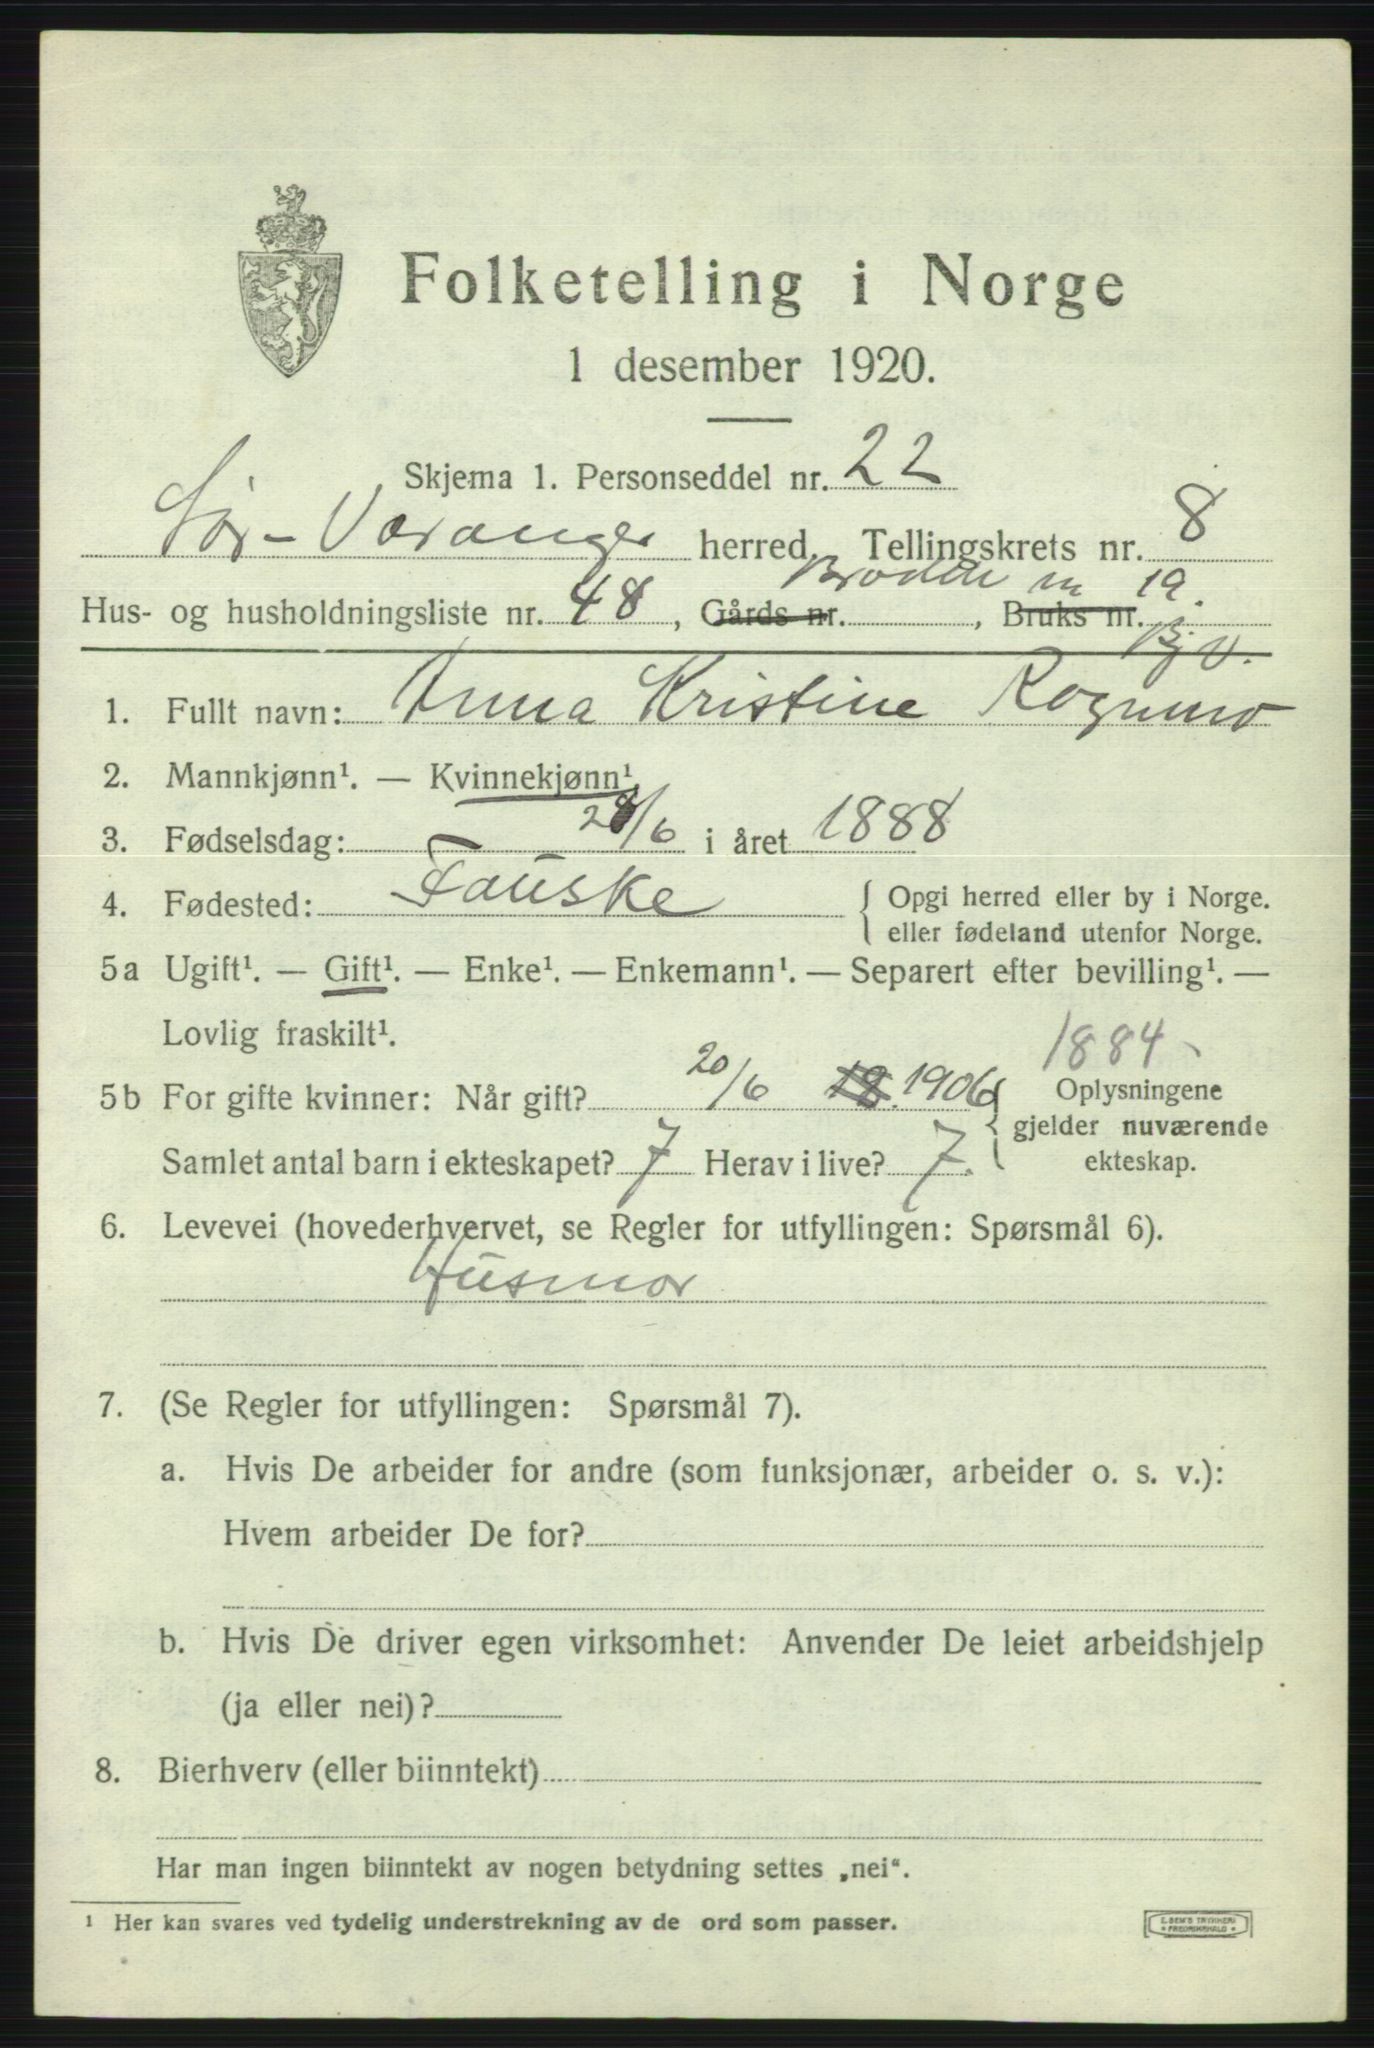 Folketelling i Norge
1 desember 1920.
Skjema 1. Personseddel nr. 22
Sør-Varanger herred. Tellingskrets nr. 8
19.
Hus- og husholdningsliste nr. 48, Gårds nr. , Bruks nr.
Bj.v.
1. Fullt navn: Anna Kristine Rognmo
2. Mannkjønn¹. — Kvinnekjønn¹.
3. Fødselsdag: 28/6 i året 1888
4. Fødested: Fauske { Opgi herred eller by i Norge.
eller fødeland utenfor Norge.
5a Ugift¹. — Gift¹. — Enke¹. — Enkemann¹. — Separert efter bevilling¹. —
Lovlig fraskilt¹.
1884
5b For gifte kvinner: Når gift? 20/6 18. 1906 { Oplysningene
gjelder nuværende
Samlet antal barn i ekteskapet? 7 Herav i live? 7. ekteskap.
6. Levevei (hovederhvervet, se Regler for utfyllingen: Spørsmål 6).
Husmor
7. (Se Regler for utfyllingen: Spørsmål 7).
a. Hvis De arbeider for andre (som funksjonær, arbeider o. s. v.):
Hvem arbeider De for?
b. Hvis De driver egen virksomhet: Anvender De leiet arbeidshjelp
(ja eller nei)?
8. Bierhverv (eller biinntekt)
Har man ingen biinntekt av nogen betydning settes „nei“.
¹ Her kan svares ved tydelig understrekning av de ord som passer.
E. SEM'S TRYKKERI
FREDRIKSHALD